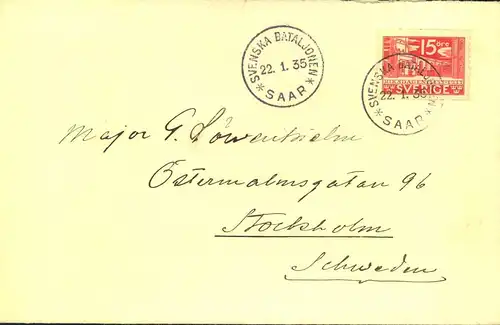 SVENSKA BATALJONEN
22. 1. 35
* SAAR *
15 ÖRE
SVERIGE
SVENSKA BATALJONEN
22. 1. 35
* SAAR *
Major G. Löwenhielm
Östermalmsgatan 96
Stockholm
Schweden